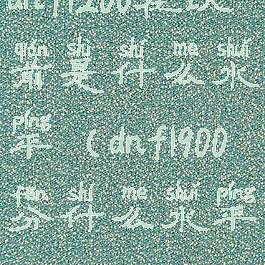 dnf1200
qián shì shí me shuǐ
前是什么水
píng
平 （dnf1900
fēn shí me shuǐ píng
分什么水平